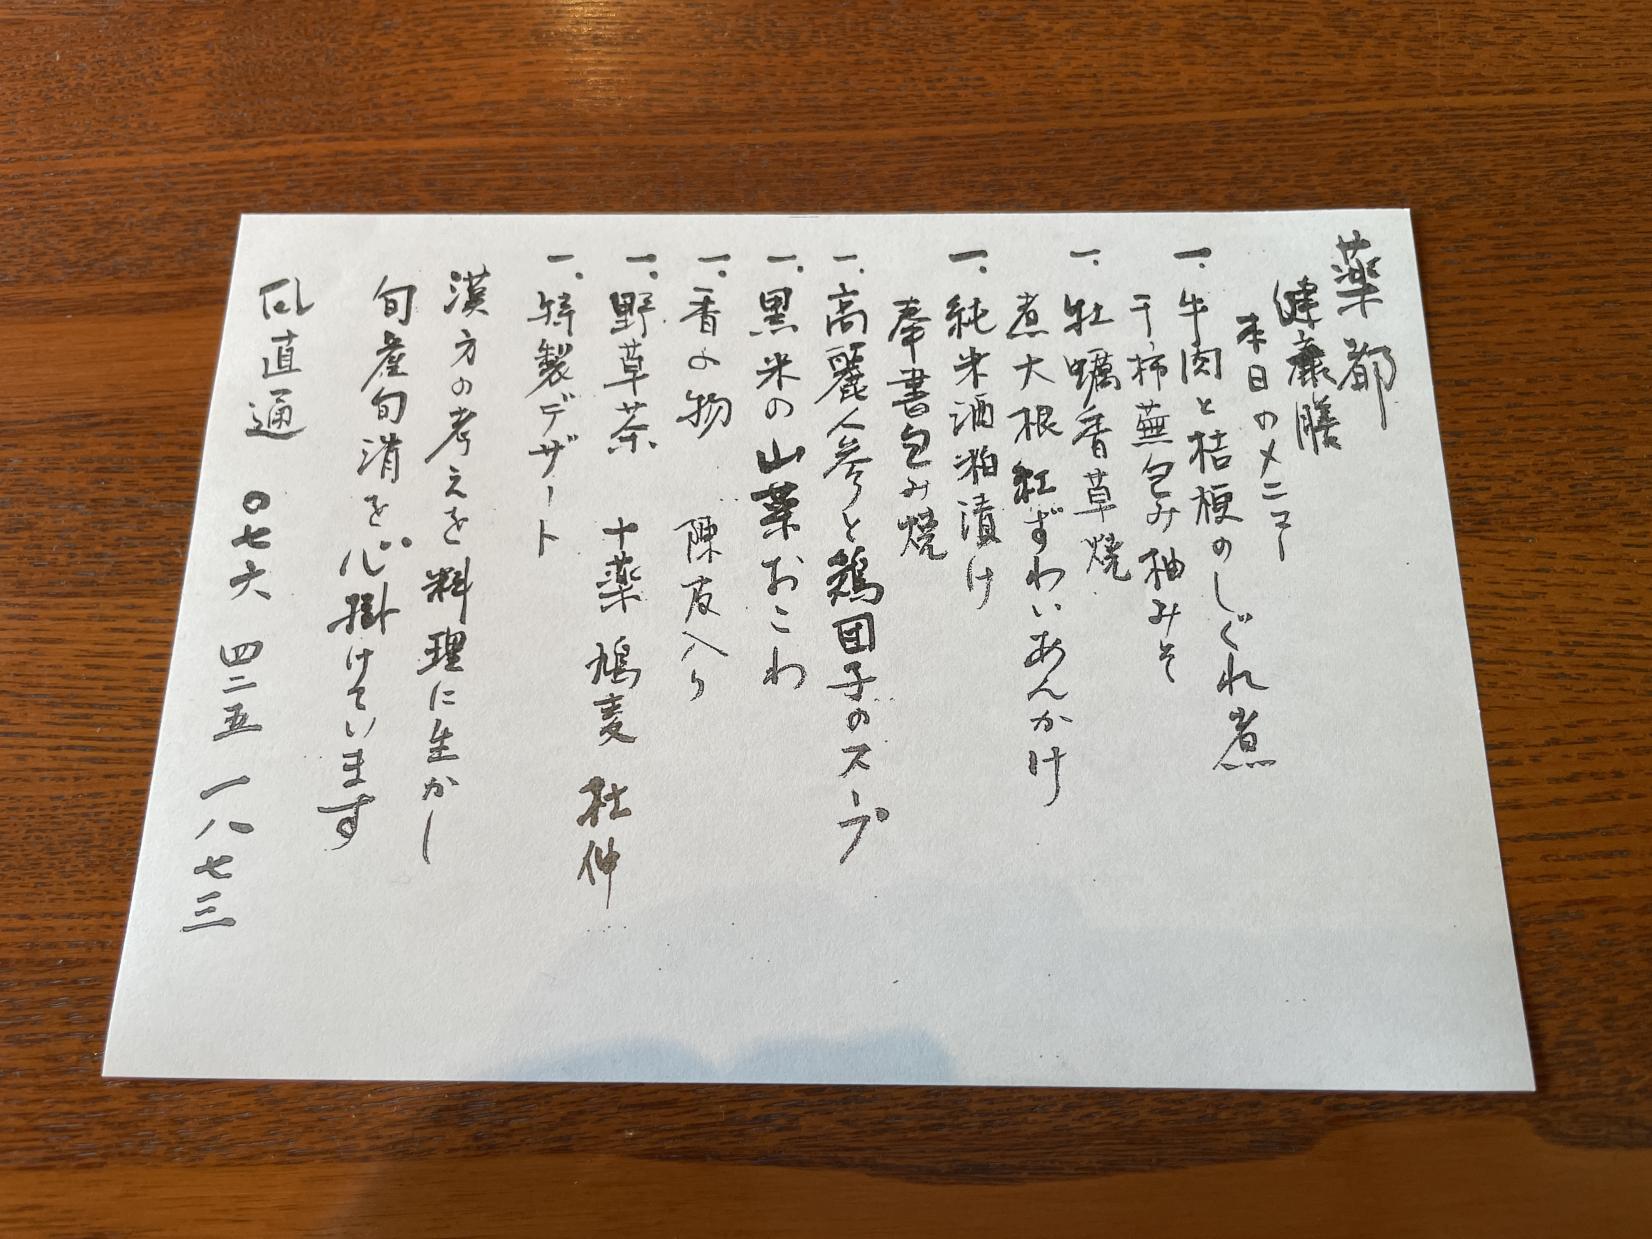 薬都
健康膳
本日のメニュー
一、牛肉と桔梗のしぐれ煮
干柿蕪包み柚みそ
一、牡蠣香草焼
煮大根紅ずわいあんかけ
一、純米酒粕漬け
奉書包み焼
一、高麗人参と鶏団子のスープ
一、黒米の山薬おこわ
一、香の物 陳皮入り
一、野草茶 十薬 鳩麦 杜仲
一、特製デザート
漢方の考えを料理に生かし
旬産旬消を心掛けています
直通 〇七六 四二五 一八七三